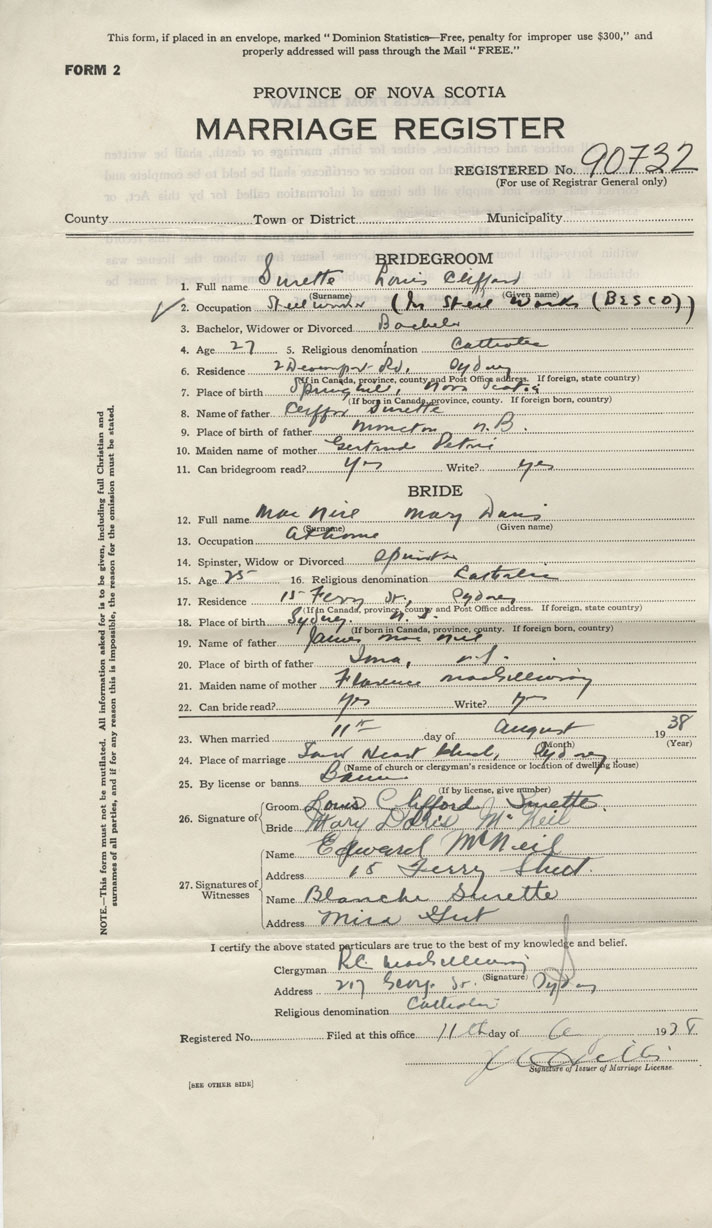 This form, if placed in an envelope, marked "Dominion Statistics—Free, penalty for improper use $300," and
properly addressed will pass through the Mail "FREE."
FORM 2
PROVINCE OF NOVA SCOTIA
MARRIAGE REGISTER
REGISTERED No. 90732
(For use of Registrar General only)
County Town or District Municipality
BRIDEGROOM
1. Full name Surette Louis Clifford
(Surname) (Given name)
2. Occupation Steel worker (In Steel Works (BESCO))
3. Bachelor, Widower or Divorced Bachelor
4. Age 27 5. Religious denomination Catholic
6. Residence 2 Davenport Rd, Sydney
(If in Canada, province, county and Post Office address. If foreign, state country)
7. Place of birth Springhill, Nova Scotia
(If born in Canada, province, county. If foreign born, country)
8. Name of father Clifford Surette
9. Place of birth of father Moncton N.B.
10. Maiden name of mother Gertrude
11. Can bridegroom read? Yes Write? yes
BRIDE
12. Full name MacNeil Mary Doris
(Surname) (Given name)
13. Occupation At home
14. Spinster, Widow or Divorced Spinster
15. Age 25 16. Religious denomination Catholic
17. Residence 15 Ferry St., Sydney
(If in Canada, province, county and Post Office address. If foreign, state country)
18. Place of birth Sydney. N.S.
(If born in Canada, province, county. If foreign born, country)
19. Name of father James MacNeil
20. Place of birth of father Iona, N.S.
21. Maiden name of mother Florence MacGillivray
22. Can bride read? Yes Write? yes
23. When married 11th day of August 1938
(Month) (Year)
24. Place of marriage Heart Church, Sydney
(Name of church or clergyman's residence or location of dwelling house)
25. By license or banns Banns
(If by license, give number)
26. Signature of Groom Louis Clifford Surette
Bride Mary Doris McNeil
27. Signatures of Witnesses
Name Edward McNeil
Address 15 Ferry Street.
Name Blanche Surette
Address Mira Gut
I certify the above stated particulars are true to the best of my knowledge and belief.
Clergyman R.C. MacGillivray
(Signature)
Address 217 George St. Sydney
Religious denomination Catholic
Registered No. Filed at this office 11th day of 193
Signature of Issuer of Marriage License.
[SEE OTHER SIDE]
NOTE.—This form must not be mutilated. All information asked for is to be given, including full Christian and
surnames of all parties, and if for any reason this is impossible, the reason for the omission must be stated.